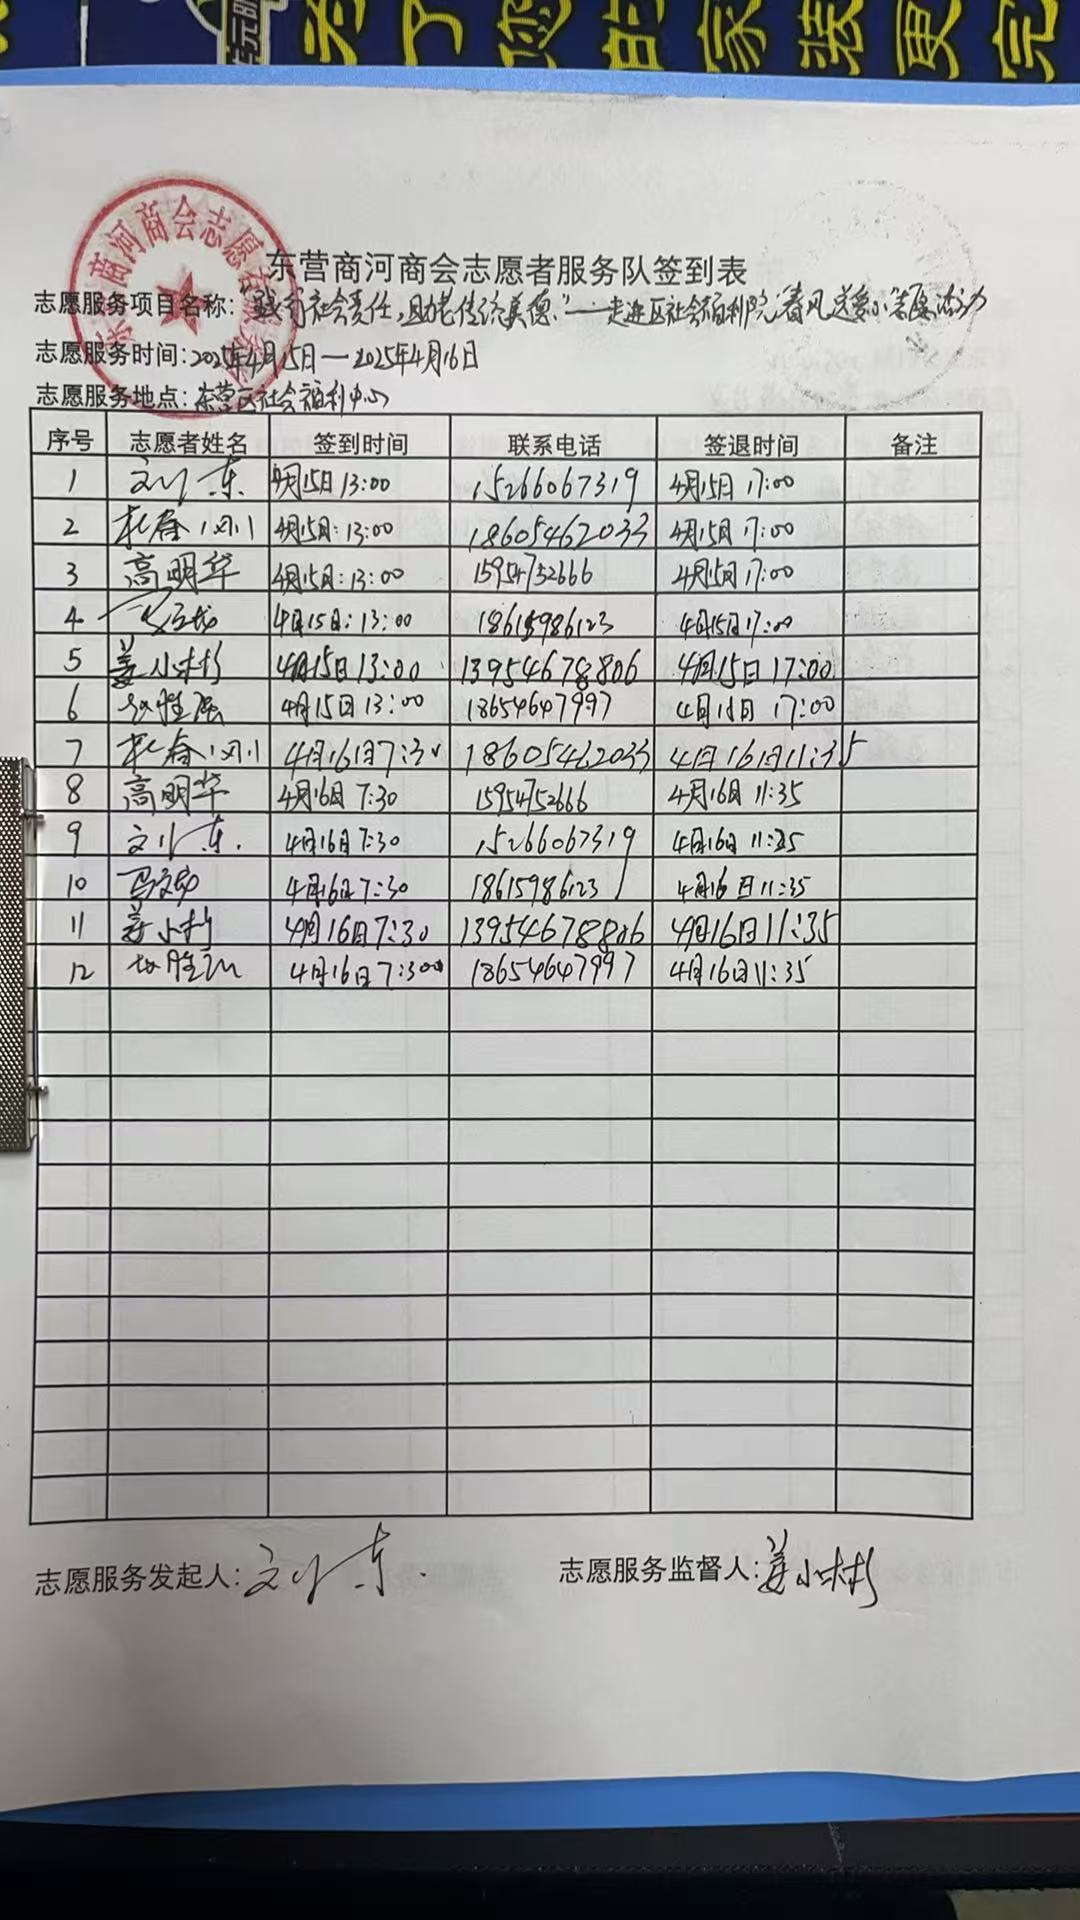 为了您的家装更完
东营商河商会志愿者服务队签到表
志愿服务项目名称:“践行社会责任,助老传统美德”——走进区社会福利院“春风送爱心”志愿活动
志愿服务时间:2025年4月15日—2025年4月16日
志愿服务地点:东营区社会福利中心
序号 志愿者姓名 签到时间 联系电话 签退时间 备注
1 刘东 4月15日13:00 15266067319 4月15日17:00
2 杜春刚 4月15日:13:00 18605462033 4月15日17:00
3 高明华 4月15日:13:00 15954752666 4月15日17:00
4 4月15日:13:00 18615986123 4月15日17:00
5 姜小彬 4月15日13:00 13954678806 4月15日17:00
6 4月15日13:00 18654647997 17:00
7 杜春刚 4月16日7:30 18605462033 4月16日11:35
8 高明华 4月16日 7:30 15954752666 4月16日 11:35
9 刘东 4月16日7:30 15266067319 4月16日 11:35
10 4月16日7:30 18615986123 4月16日11:35
11 姜小彬 4月16日7:30 13954678806 4月16日11:35
12 4月16日7:30 18654647997 4月16日11:35
志愿服务发起人:刘东 志愿服务监督人:姜小彬